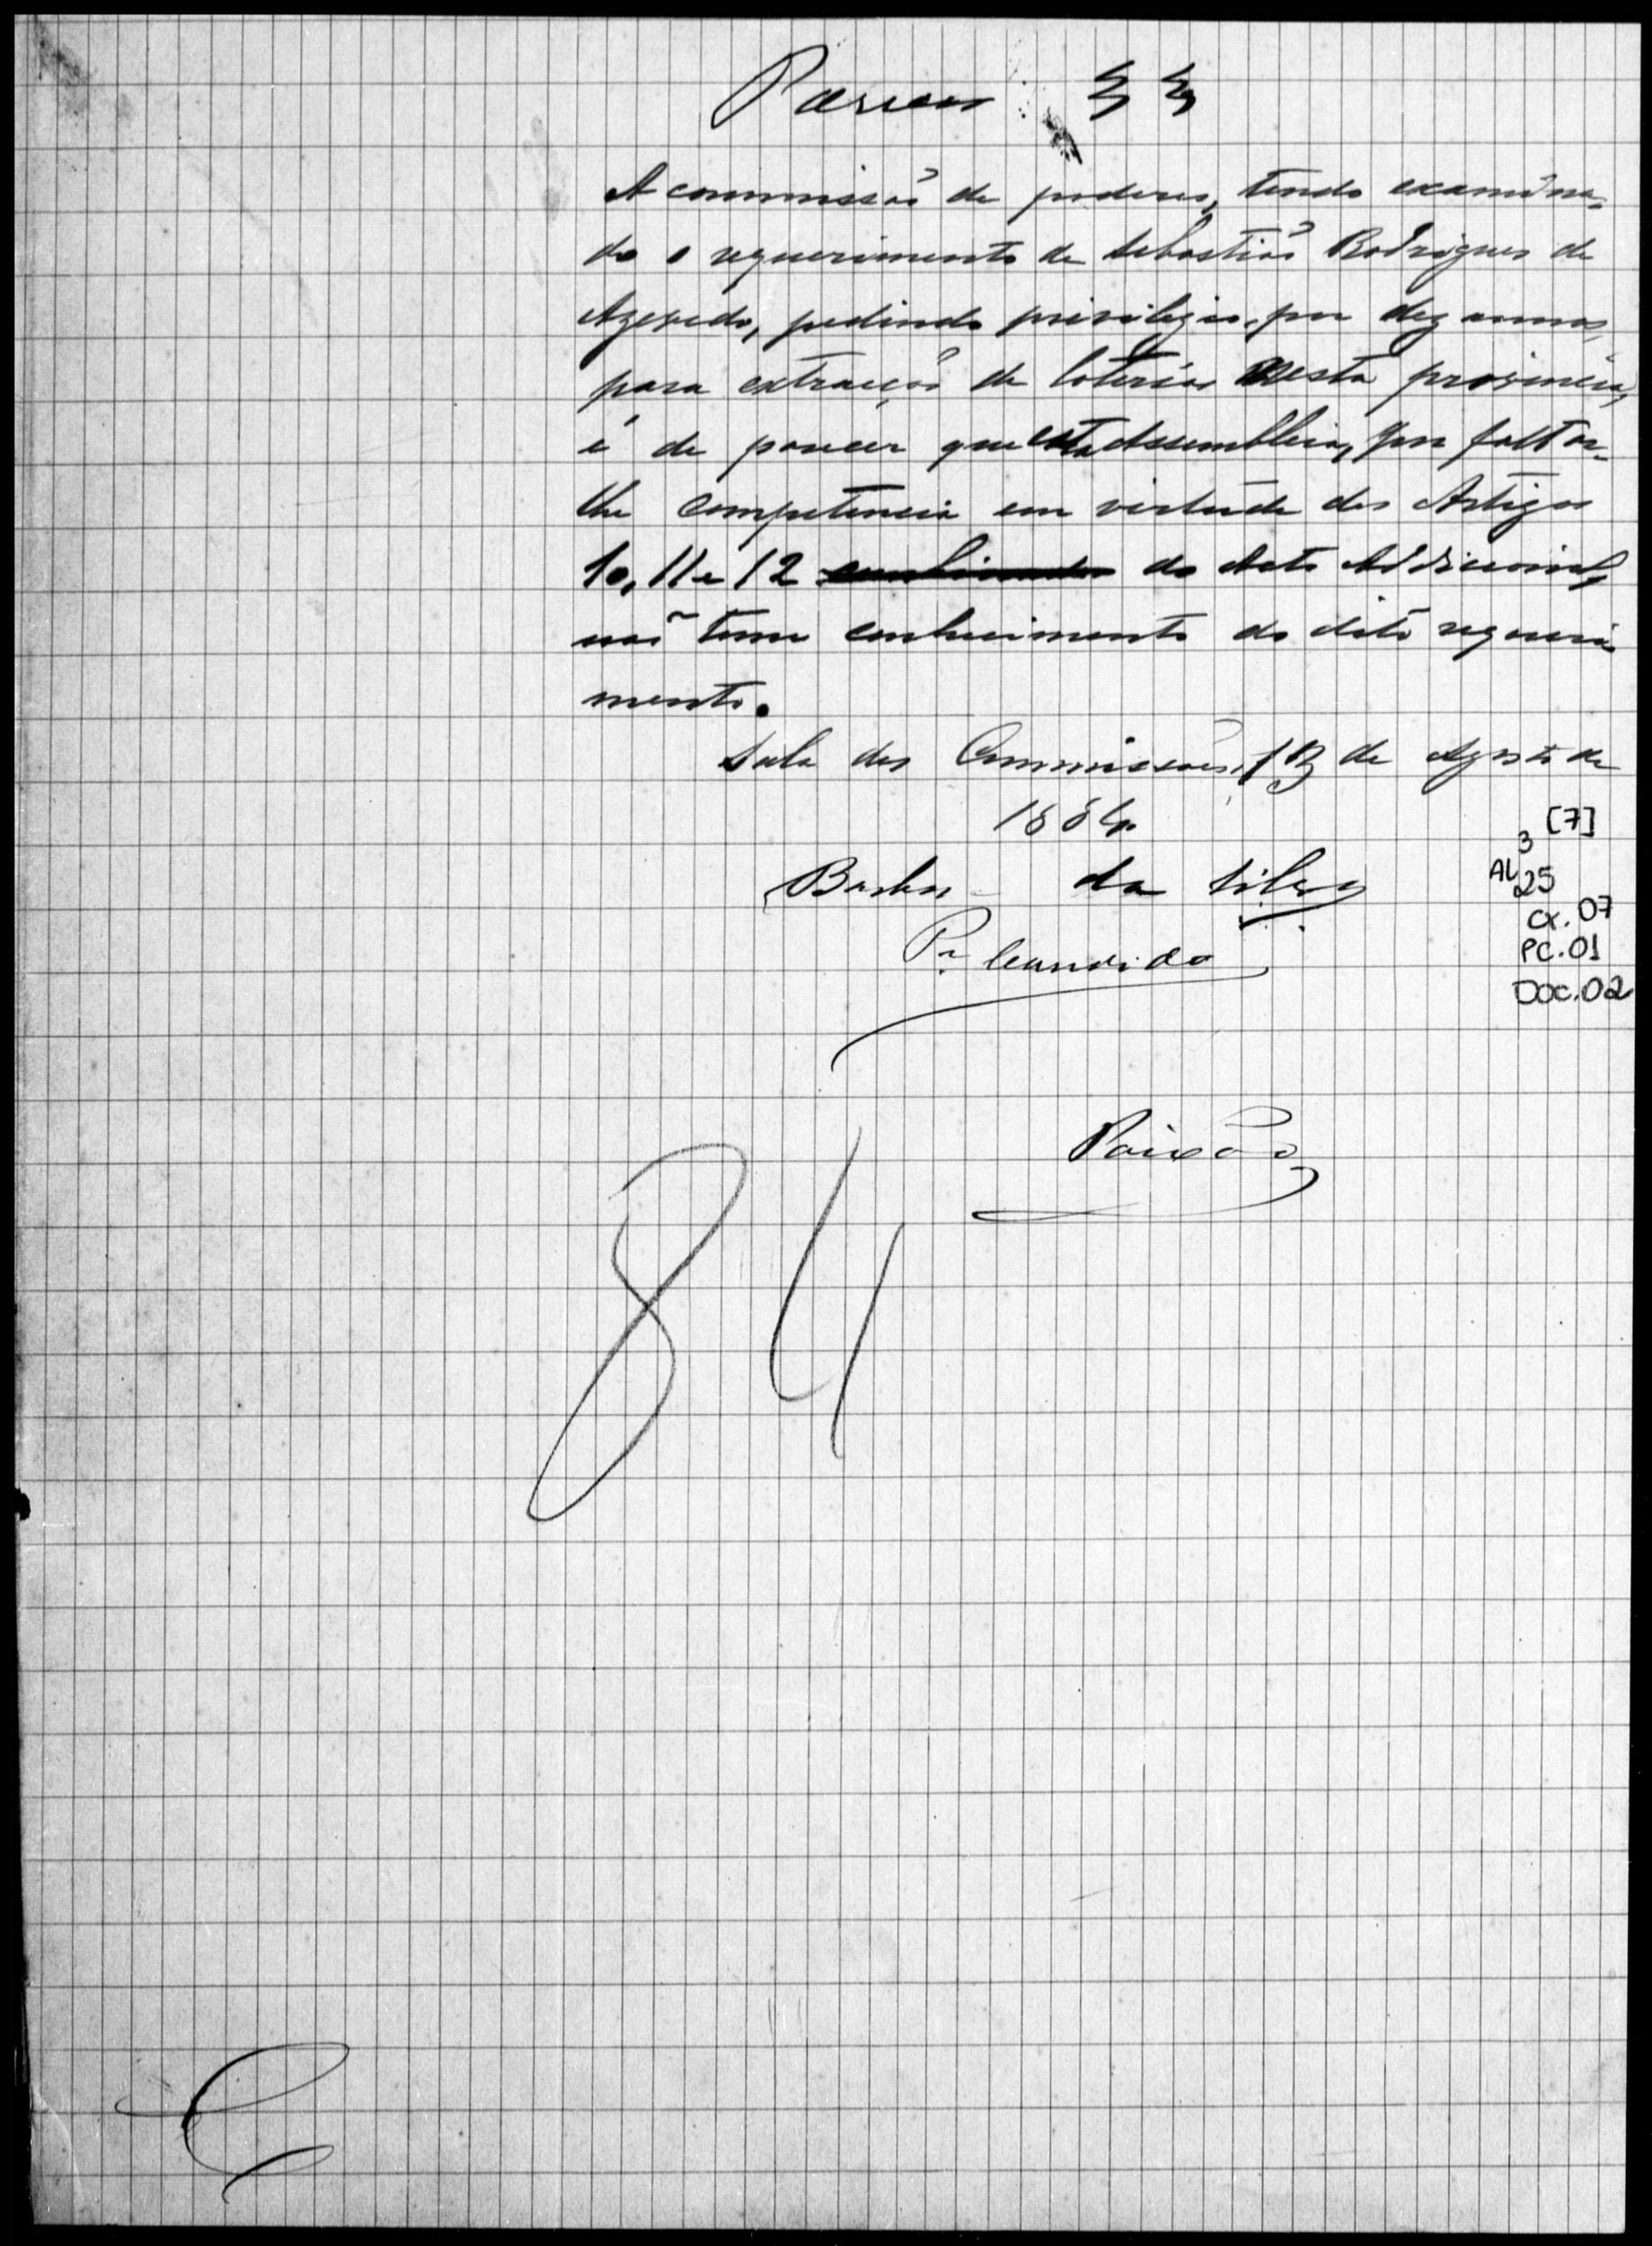 Parecer 33
A commissão de poderes, tendo examina-
do o requerimento de Sebastião Rodrigues de
Azevedo, pedindo privilegio, por dez annos,
para extracção de loterias nesta provincia,
é de parecer que esta Assembleia, por faltar-
lhe competencia em virtude dos Artigos
10, 11 e 12 combinados do Acto Addicional,
não tome conhecimento do dito requeri-
mento.
Sala das Commissões, 13 de Agosto de
1884.
Barbosa da Silva
Pe. Candido
Paixão
84
3 [7]
AL 25
CX. 07
PC. 01
DOC. 02